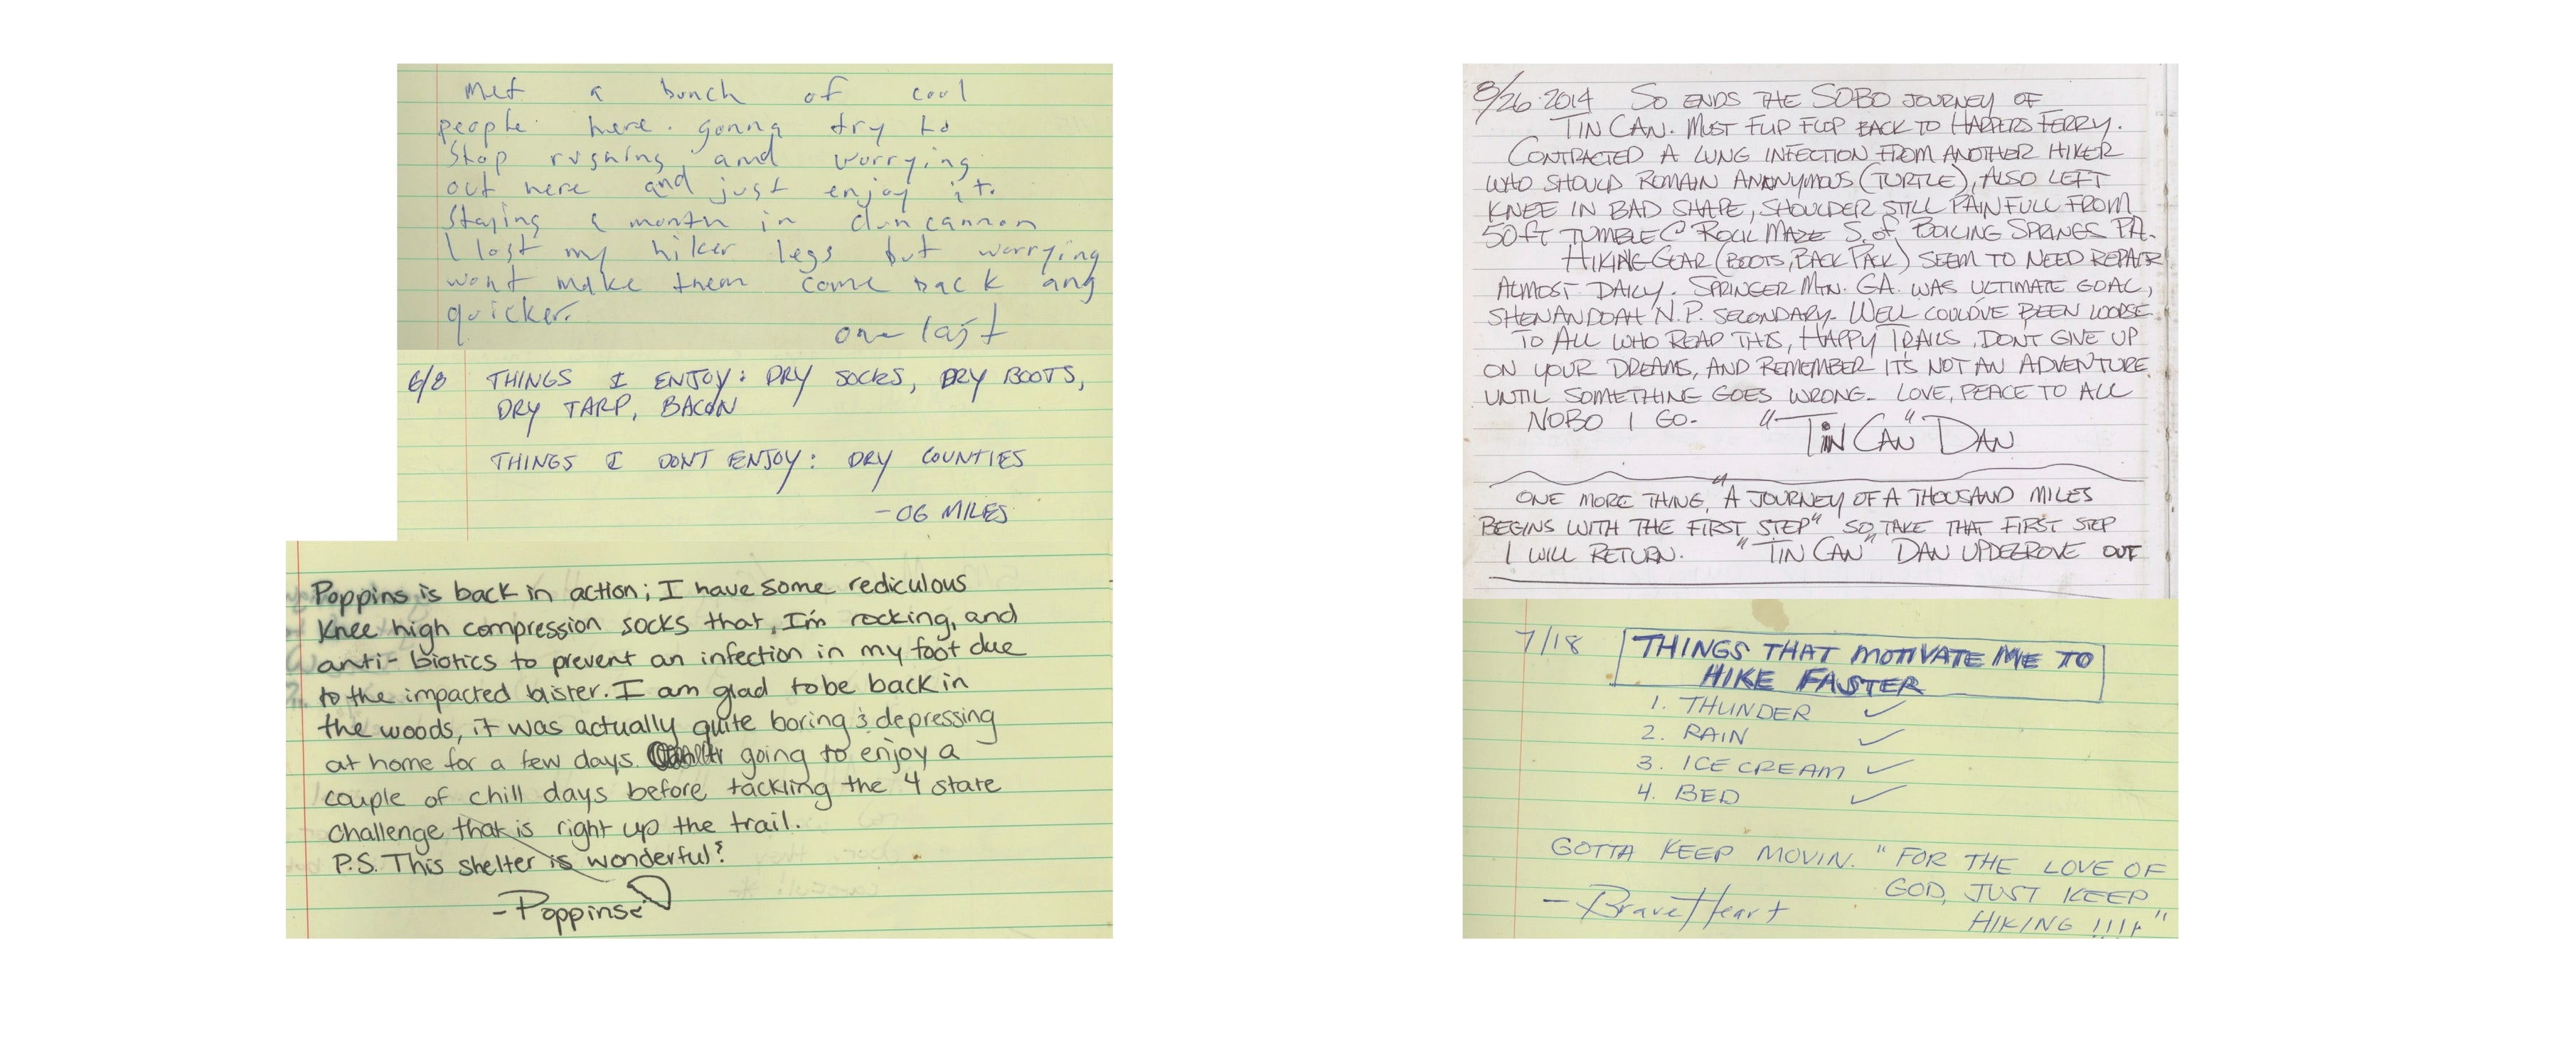 Met a bunch of cool
people here. gonna try to
Stop rushing and worrying
out here and just enjoy it.
Staying a month in duncannon
I lost my hiker legs but worrying
wont make them come back any
quicker.
one last
6/8 THINGS I ENJOY: DRY SOCKS, DRY BOOTS,
DRY TARP, BACON
THINGS I DONT ENJOY: DRY COUNTIES
- OG MILES
Poppins is back in action; I have some rediculous
Knee high compression socks that I'm rocking, and
anti-biotics to prevent an infection in my foot due
to the impacted blister. I am glad to be back in
the woods, it was actually quite boring & depressing
at home for a few days. going to enjoy a
couple of chill days before tackling the 4 state
challenge that is right up the trail.
P.S. This shelter is wonderful!
- Poppins
8/26·2014 SO ENDS THE SOBO JOURNEY OF
TIN CAN. MUST FLIP FLOP BACK TO HARPERS FERRY.
CONTRACTED A LUNG INFECTION FROM ANOTHER HIKER
WHO SHOULD REMAIN ANONYMOUS (TURTLE), ALSO LEFT
KNEE IN BAD SHAPE, SHOULDER STILL PAINFULL FROM
50ft TUMBLE @ ROCK MAZE S. of BOILING SPRINGS PA.
HIKING GEAR (BOOTS, BACK PACK) SEEM TO NEED REPAIR
ALMOST DAILY. SPRINGER MTN. GA. WAS ULTIMATE GOAL,
SHENANDOAH N.P. SECONDARY. WELL COULDVE BEEN WORSE.
TO ALL WHO READ THIS, HAPPY TRAILS, DONT GIVE UP
ON YOUR DREAMS, AND REMEMBER ITS NOT AN ADVENTURE
UNTIL SOMETHING GOES WRONG. LOVE, PEACE TO ALL
NOBO I GO- "TIN CAN" DAN
ONE MORE THING, "A JOURNEY OF A THOUSAND MILES
BEGINS WITH THE FIRST STEP" SO, TAKE THAT FIRST STEP
I WILL RETURN. "TIN CAN" DAN UPDEGROVE OUT
7/18 THINGS THAT MOTIVATE ME TO
HIKE FASTER
1. THUNDER ✓
2. RAIN ✓
3. ICE CREAM ✓
4. BED ✓
GOTTA KEEP MOVIN. "FOR THE LOVE OF
GOD, JUST KEEP
HIKING !!!!"
- BraveHeart